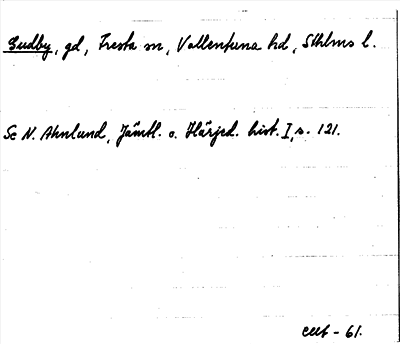 Gudby, gd, Fresta sn, Vallentuna hd, Sthlms l.
Se N. Ahnlund, Jämtl. o. Härjed. hist. I, s. 121.
- 61.